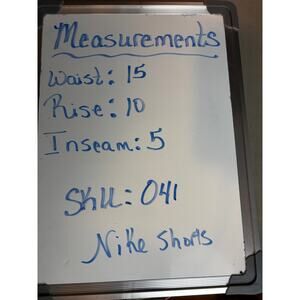 Measurements
Waist: 15
Rise: 10
Inseam: 5
SKU: 041
Nike Shorts